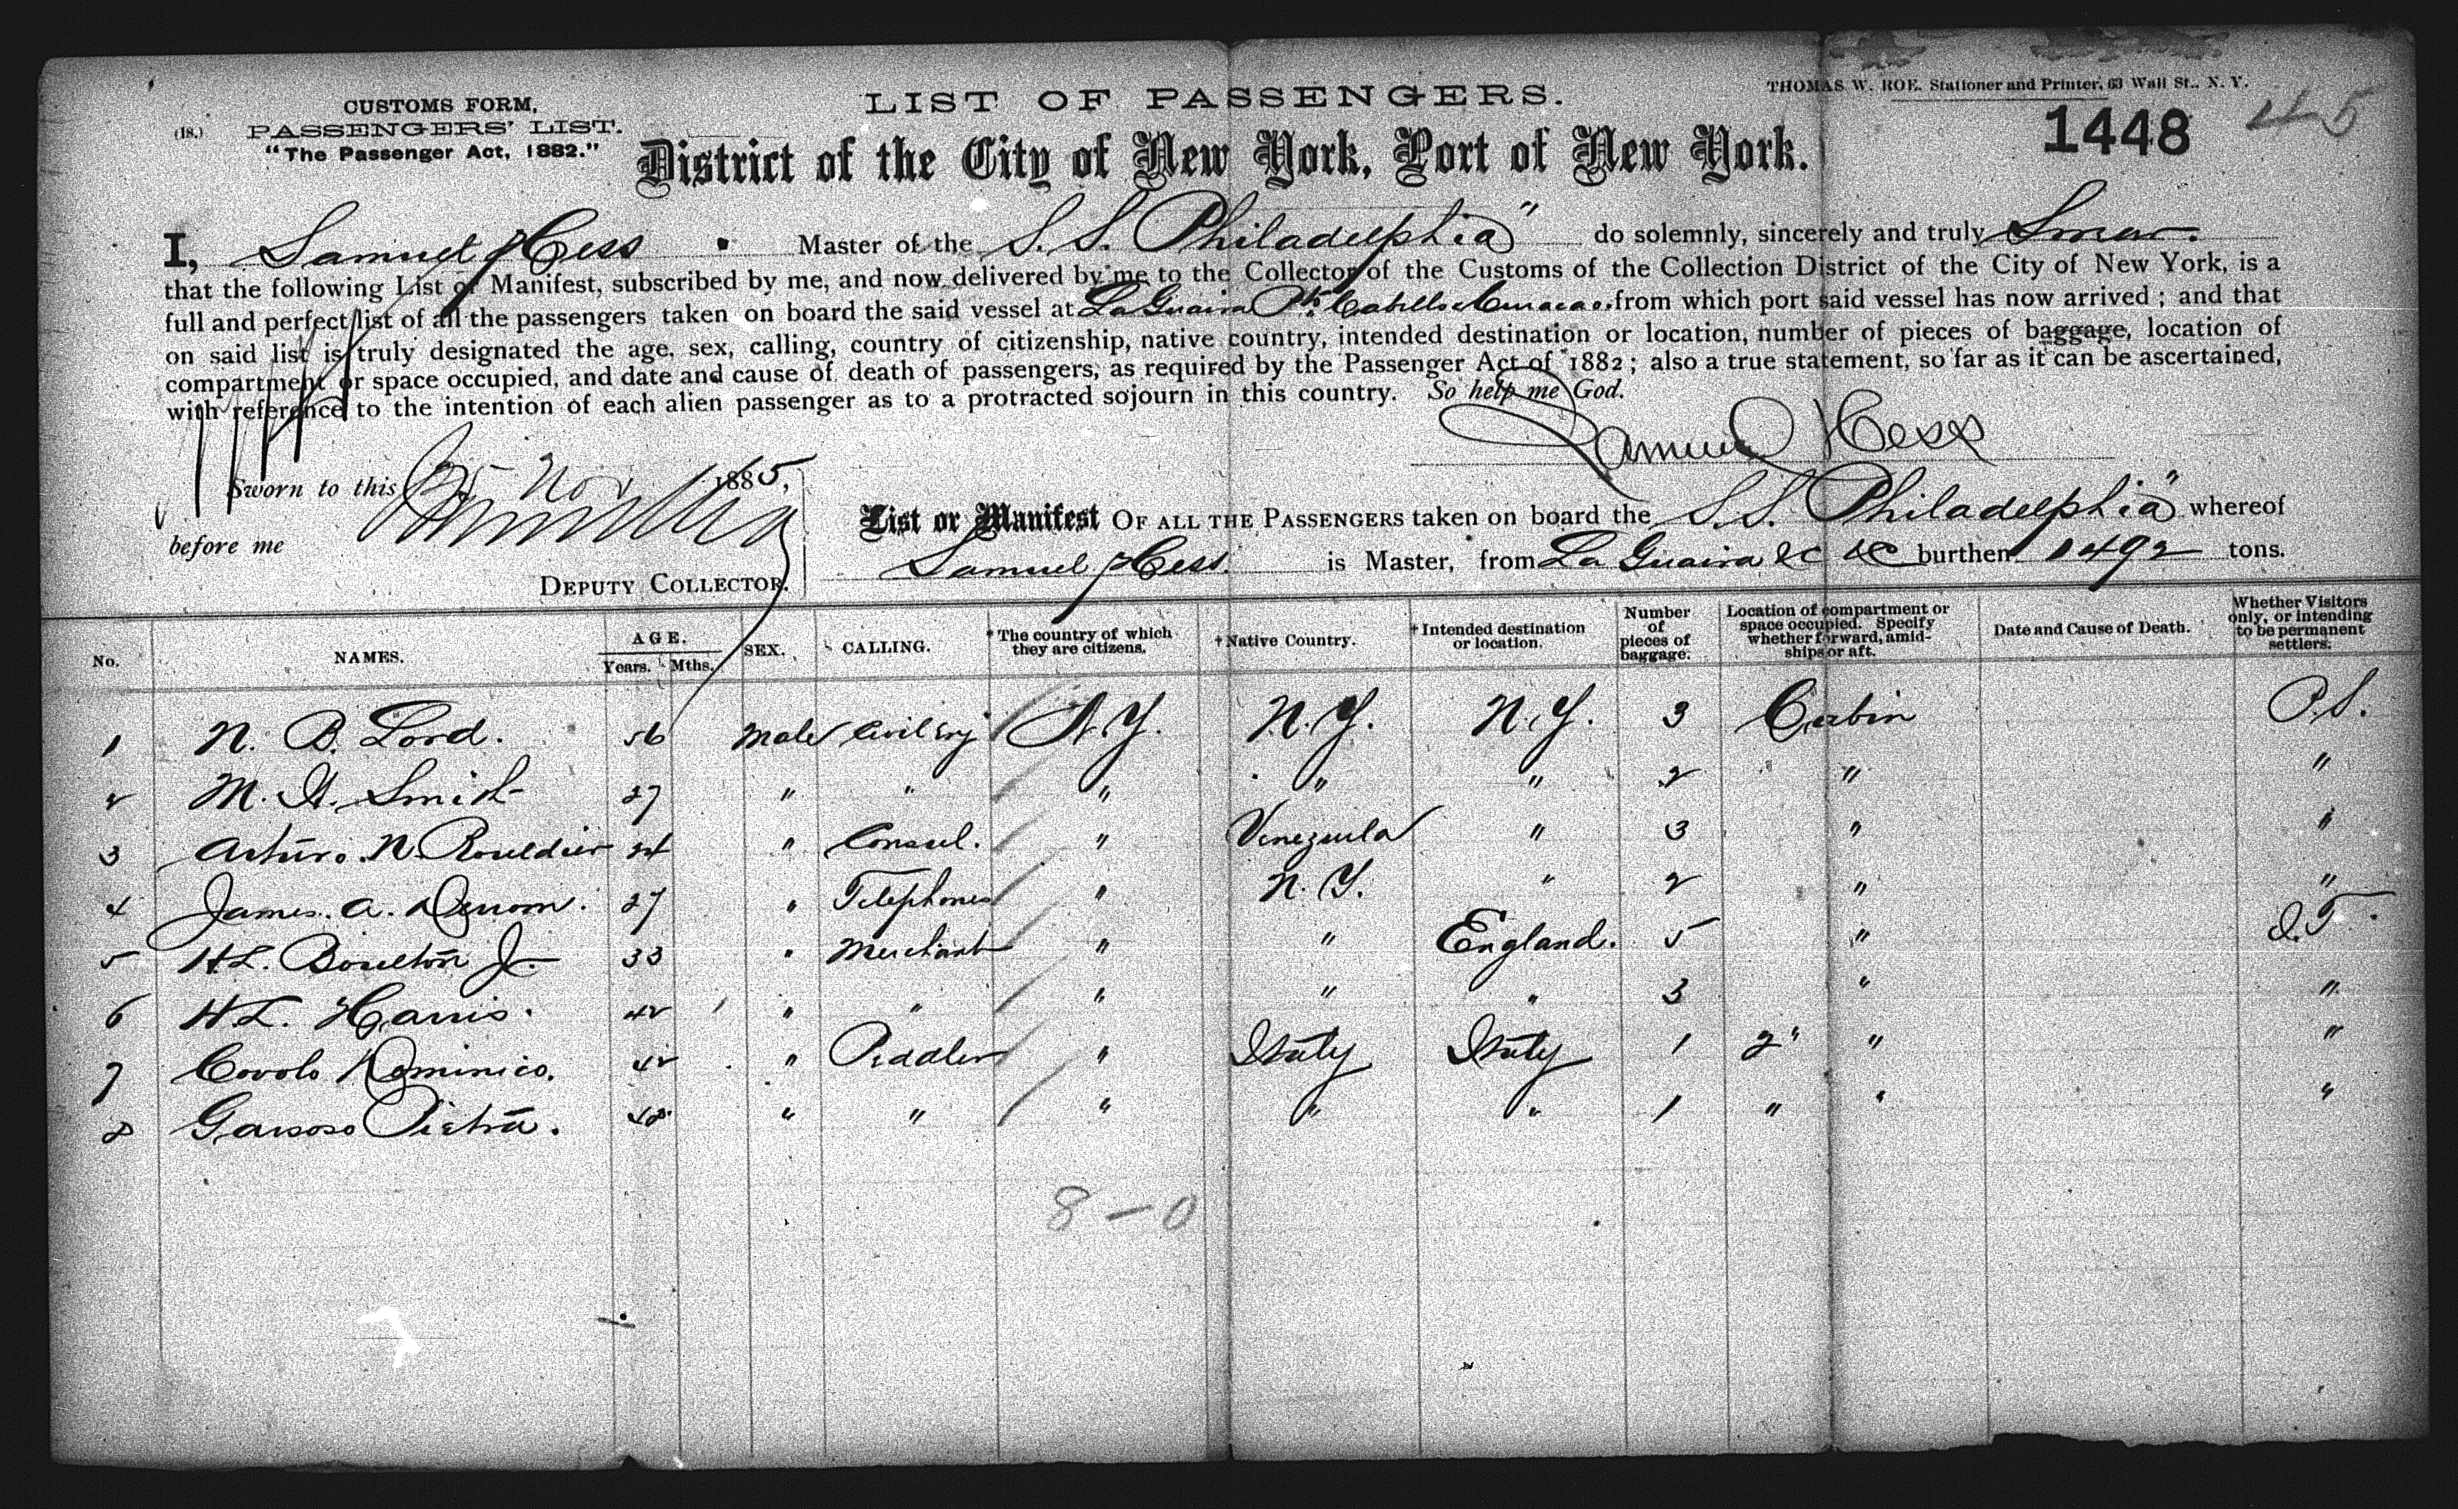 CUSTOMS FORM.
(18.) PASSENGERS' LIST.
"The Passenger Act, 1882."
LIST OF PASSENGERS.
THOMAS W. ROE. Stationer and Printer, 63 Wall St., N. Y.
District of the City of New York, Port of New York.
1448 45
I, Samuel Hess Master of the S. S. Philadelphia" do solemnly, sincerely and truly Swear.
that the following List or Manifest, subscribed by me, and now delivered by me to the Collector of the Customs of the Collection District of the City of New York, is a
full and perfect list of all the passengers taken on board the said vessel at La Guaira Pto. Cabello & Curacao. from which port said vessel has now arrived; and that
on said list is truly designated the age, sex, calling, country of citizenship, native country, intended destination or location, number of pieces of baggage, location of
compartment or space occupied, and date and cause of death of passengers, as required by the Passenger Act of 1882; also a true statement, so far as it can be ascertained,
with reference to the intention of each alien passenger as to a protracted sojourn in this country. So help me God.
Samuel Hess
Sworn to this 25 Nov 1885,
before me
DEPUTY COLLECTOR.
List or Manifest OF ALL THE PASSENGERS taken on board the S. S. Philadelphia" whereof
Samuel Hess. is Master, from La Guaira &c &c burthen 1492 tons.
No. NAMES. AGE. Years. Mths. SEX. CALLING. * The country of which they are citizens. † Native Country. † Intended destination or location. Number of pieces of baggage. Location of compartment or space occupied. Specify whether forward, amidships or aft. Date and Cause of Death. Whether Visitors only, or intending to be permanent settlers.
1 N. B. Lord. 56 Male Civil Eng N. Y. N. Y. N. Y. 3 Cabin P. S.
2 M. H. Smith 27 " " " " " 2 " "
3 Arturo. N. Rouldier 24 " Consul. " Venezuela " 3 " "
4 James. A. 27 " Telephones " N. Y. " 2 " "
5 H L. Boulton Jr. 33 " Merchant " " England. 5 " I. T.
6 H. L. Harris. 42 " " " " " 3 " "
7 Covolo Dominico. 42 " Peddler " Italy Italy 1 2" " "
8 Garsoso Pietra. 48 " " " " " 1 " " "
8 – 0